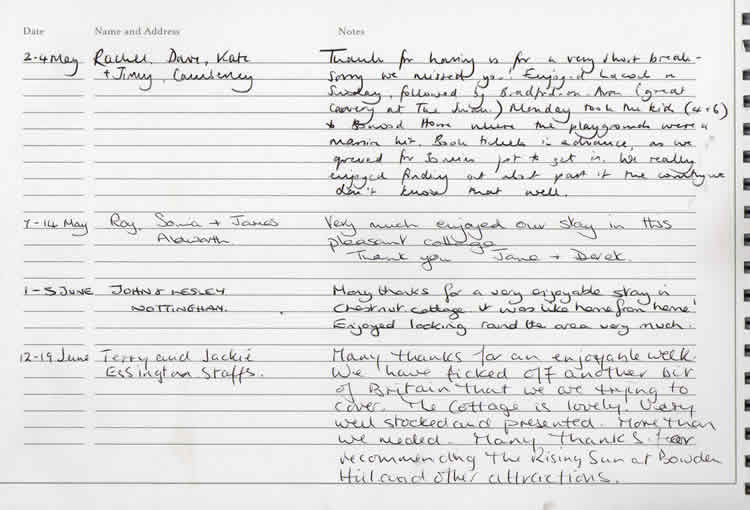 Date Name and Address Notes
2-4 May Rachel, Dave, Kate
+ Jimmy, Courteney
Thanks for having us for a very short break -
Sorry we missed you! Enjoyed Lacock on
Sunday, followed by Bradford-on-Avon (great
at The ) Monday took the kids (4+6)
to Bowood House where the playgrounds were a
massive hit. Book tickets in advance, as we
queued for 30 mins just to get in. We really
enjoyed finding out about part of the country we
don't know that well.
7-14 May Roy, Sonia + James
Aldworth.
Very much enjoyed our stay in this
pleasant cottage
Thank you Jane + Derek.
1-5 JUNE JOHN & LESLEY
NOTTINGHAM.
Many thanks for a very enjoyable stay in
Chestnut cottage it was like home from home!
Enjoyed looking round the area very much.
12-19 June Terry and Jackie
Essington Staffs.
Many thanks for an enjoyable week.
We have ticked off another bit
of Britain that we are trying to
cover. The Cottage is lovely! Very
well stocked and presented. More than
we needed. Many thanks for
recommending the Rising Sun at Bowden
Hill and other attractions.